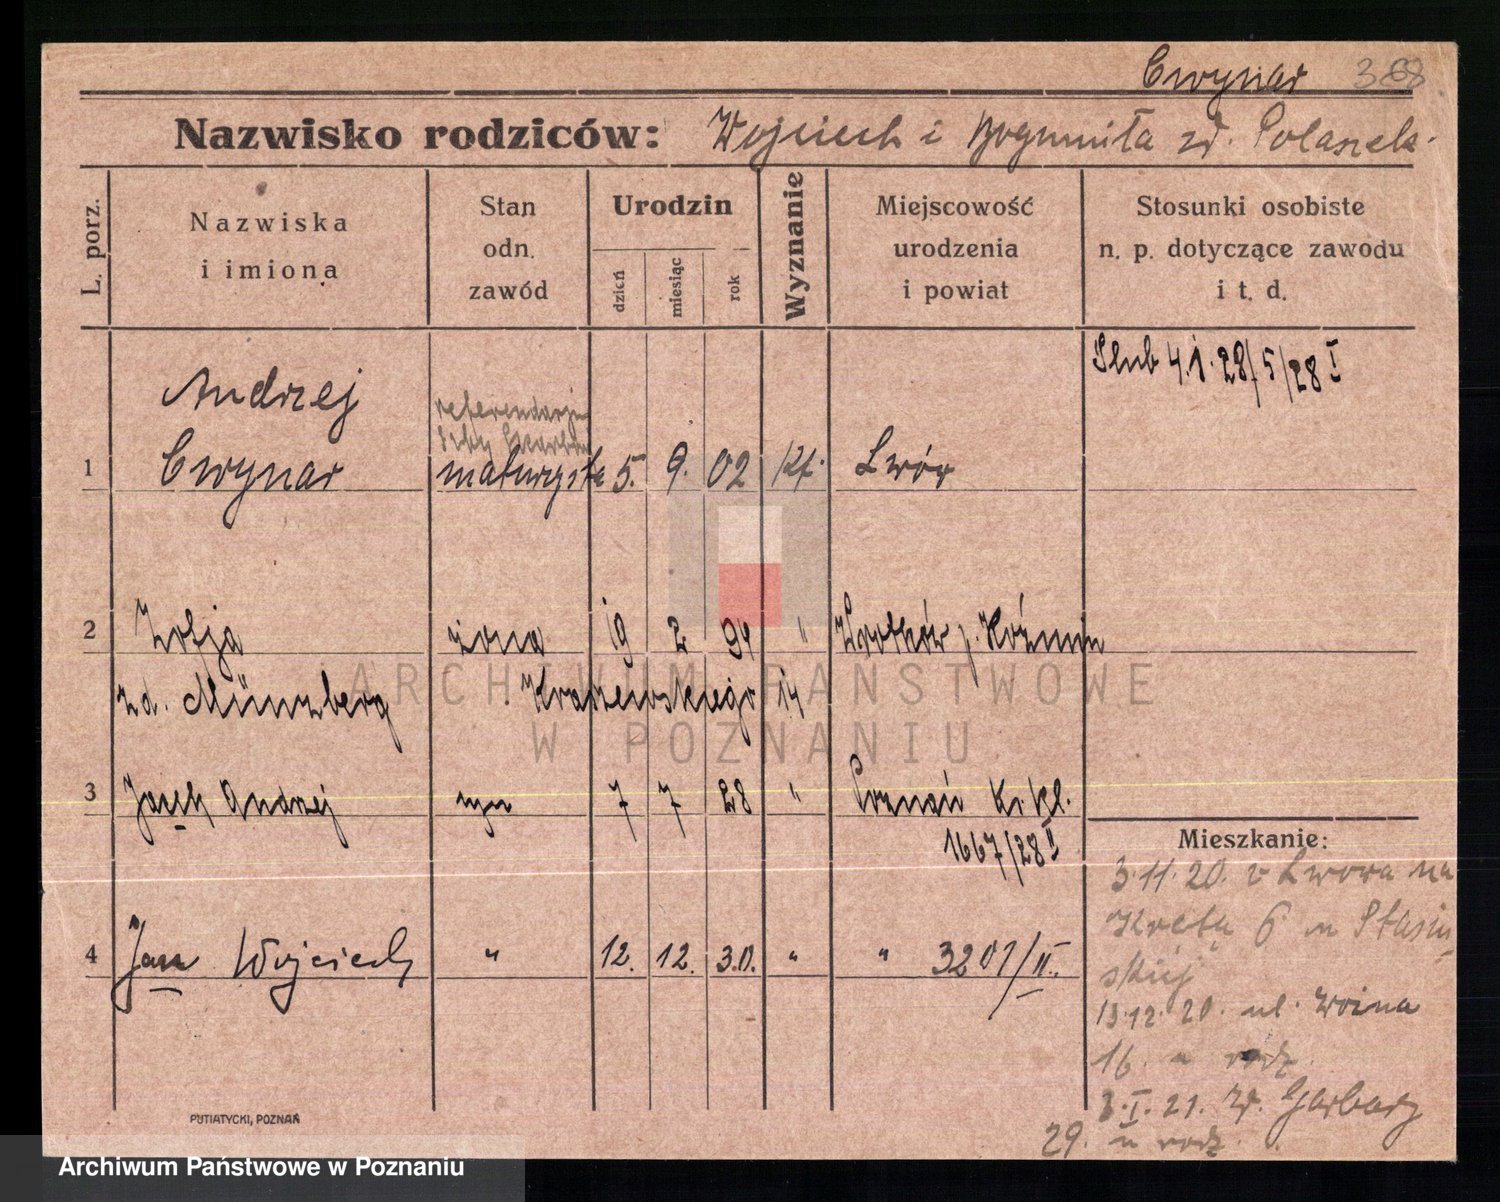 Cwynar 388
Nazwisko rodziców: Wojciech i Bogumiła zd. Polaszek.
L. porz.
Nazwiska
i imiona
Stan
odn.
zawód
Urodzin
dzień
miesiąc
rok
Wyznanie
Miejscowość
urodzenia
i powiat
Stosunki osobiste
n. p. dotyczące zawodu
i t. d.
Ślub 4.1.28/5/28 I
Andrzej
referendarz
Izby Skarbow
1 Cwynar maturzysta 5. 9. 02 kt. Lwów
2 Zofja żona 19 2 94 " p. Koźmin
zd. Münzberg Kraszewskiego 14
3 Jacek Andrzej syn 7 7 28 " Poznań
1667/28 II
Mieszkanie:
3.11.20. z Lwowa na
Kręta 6 u Stasiń
skiej
4 Jan Wojciech " 12. 12. 30. " " 3201/II.
13.12.20. ul.
16. u rodz.
3.I.21. Garbary
29. u rodz.
PUTIATYCKI, POZNAŃ
ARCHIWUM PAŃSTWOWE
W POZNANIU
Archiwum Państwowe w Poznaniu